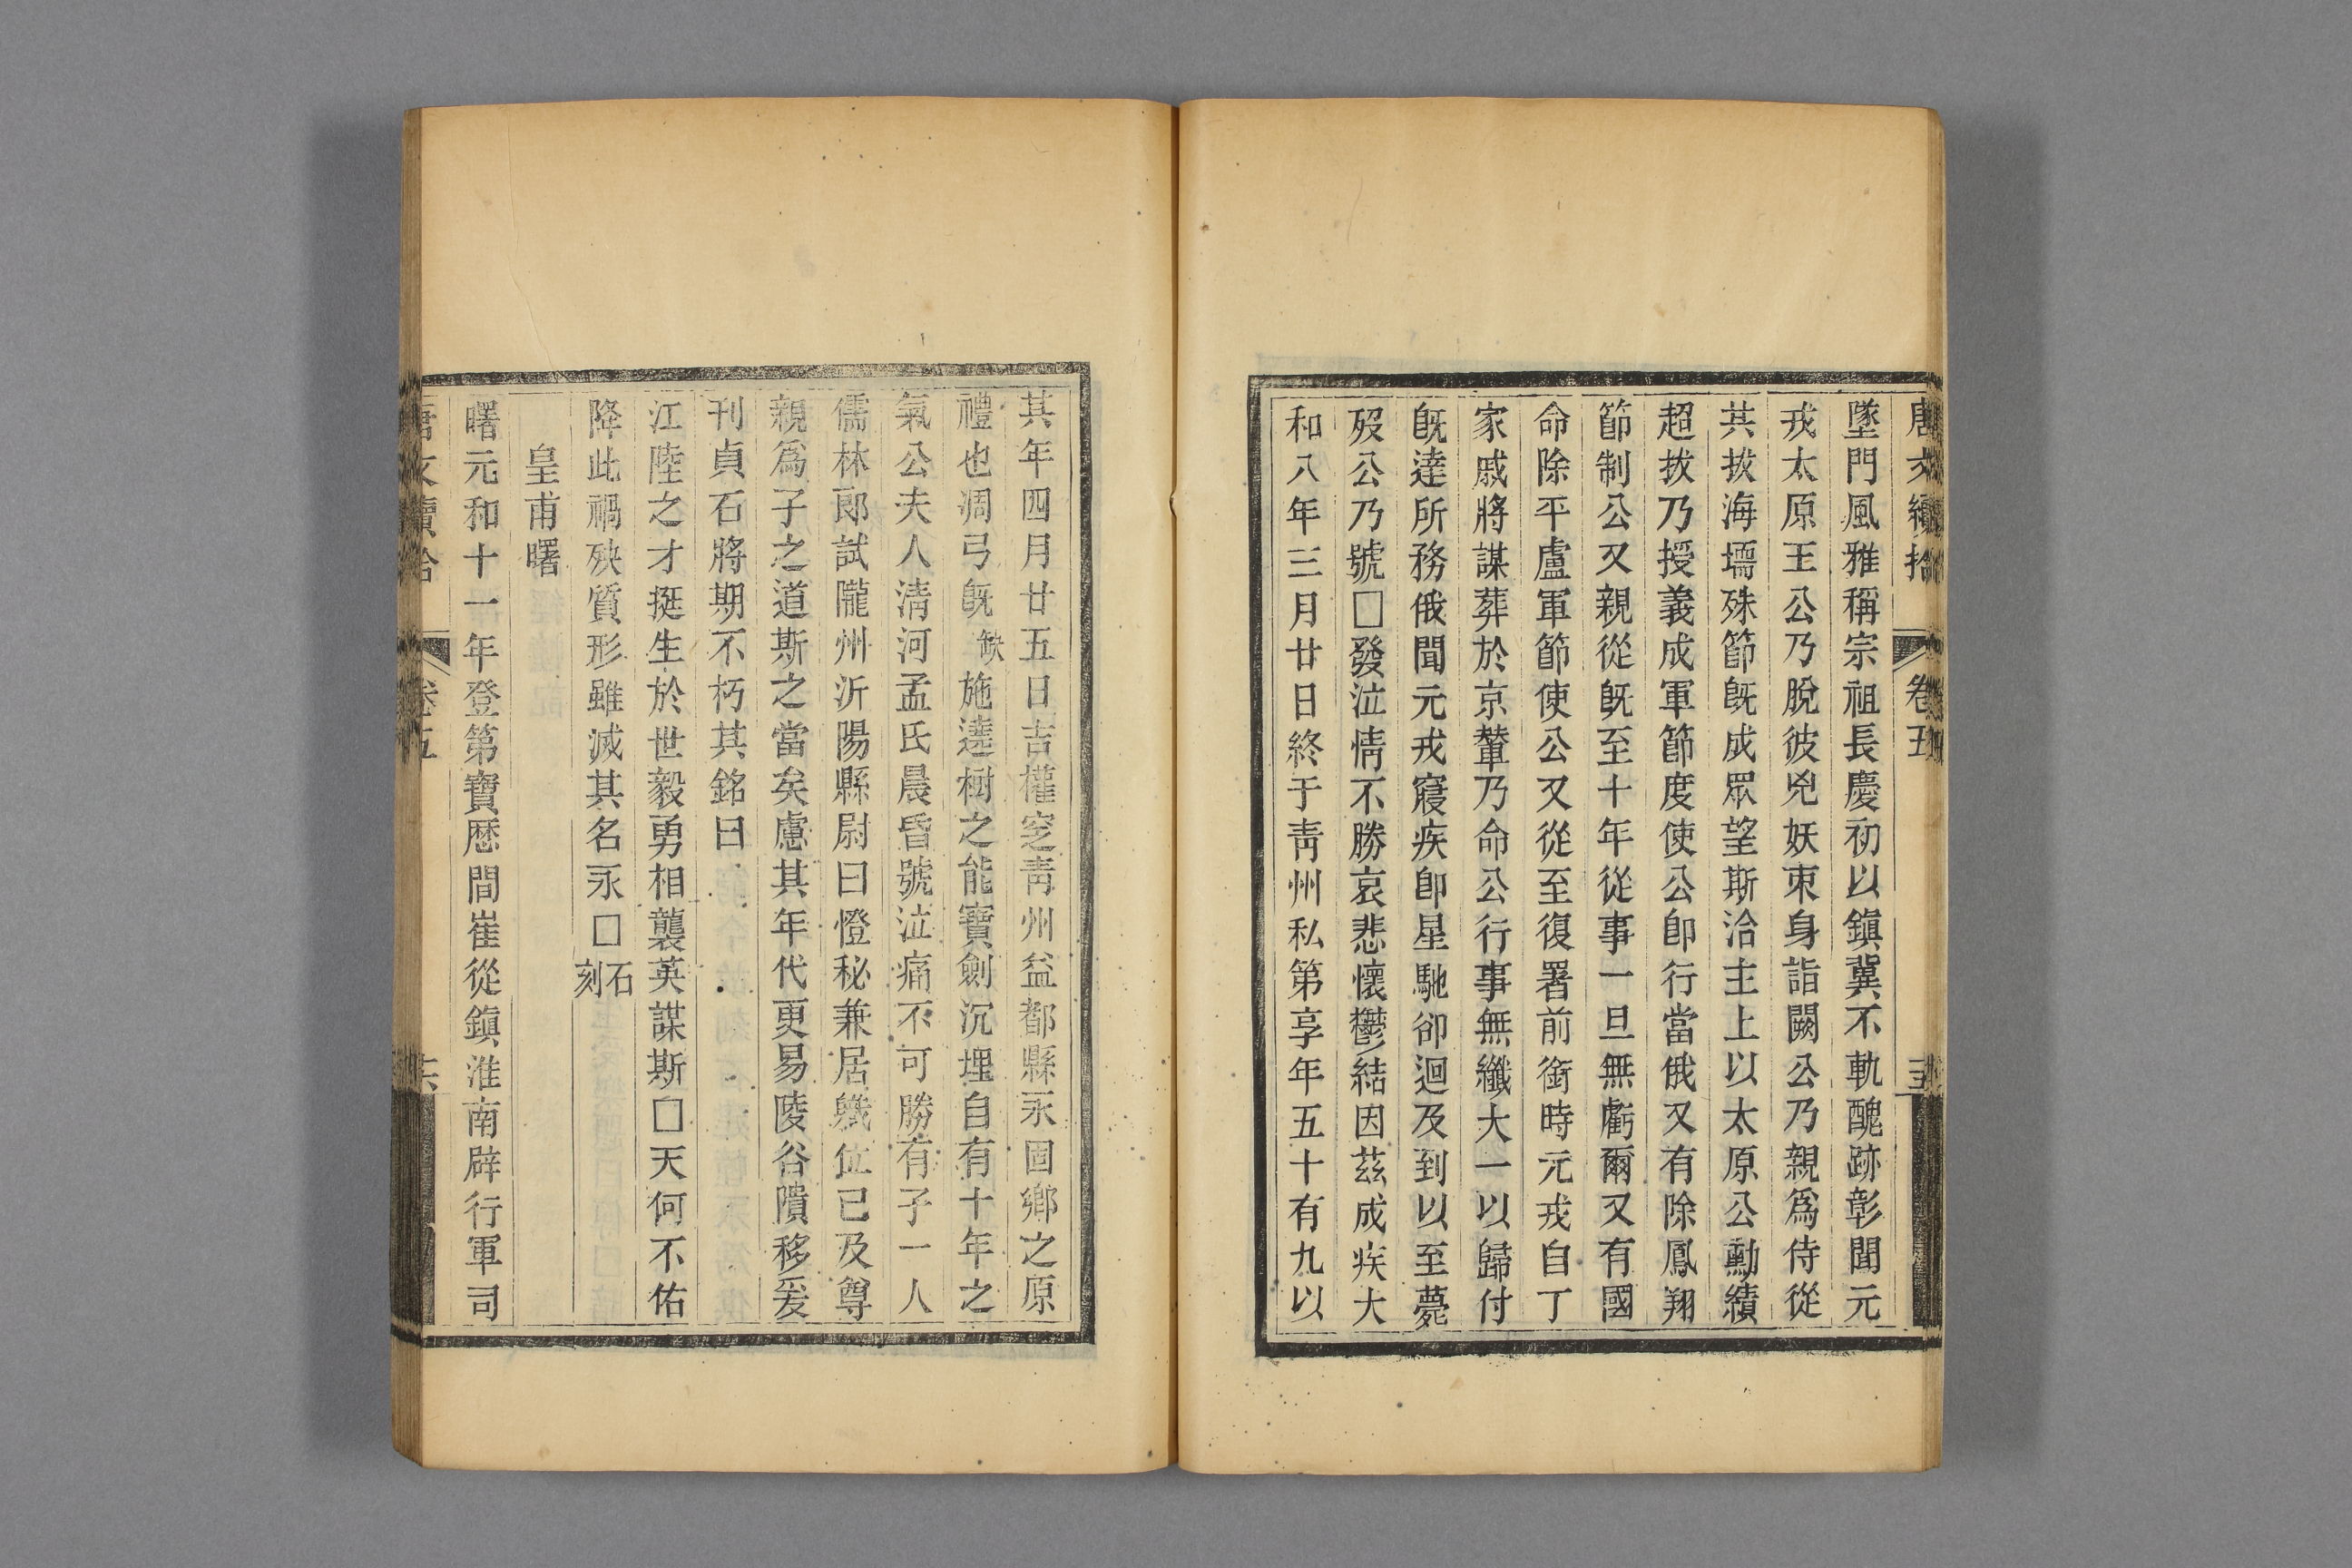 唐文續拾 卷五
墜門風雅稱宗祖長慶初以鎭冀不軌醜跡彰聞元
戎太原王公乃脫彼兇妖束身詣闕公乃親爲侍從
其拔海壖殊節旣成眾望斯洽主上以太原公勳績
超拔乃授義成軍節度使公卽行當俄又有除鳳翔
節制公又親從旣至十年從事一旦無虧爾又有國
命除平盧軍節使公又從至復署前銜時元戎自丁
家戚將謀葬於京輦乃命公行事無纖大一以歸付
旣達所務俄聞元戎寢疾卽星馳卻迴及到以至薨
歿公乃號□發泣情不勝哀悲懷鬱結因茲成疾大
和八年三月廿日終于靑州私第享年五十有九以
其年四月廿五日吉權窆靑州益都縣永固鄉之原
禮也凋弓旣缺施遶樹之能寶劍沉埋自有十年之
氣公夫人淸河孟氏晨昏號泣痛不可勝有子一人
儒林郎試隴州沂陽縣尉曰憕秘兼居職位已及尊
親爲子之道斯之當矣慮其年代更易陵谷隤移爰
刊貞石將期不朽其銘曰
江陸之才挺生於世毅勇相襲英謀斯□天何不佑
降此禍殃質形雖滅其名永□石刻
皇甫曙
曙元和十一年登第寶歷間崔從鎭淮南辟行軍司
唐文續拾 卷五